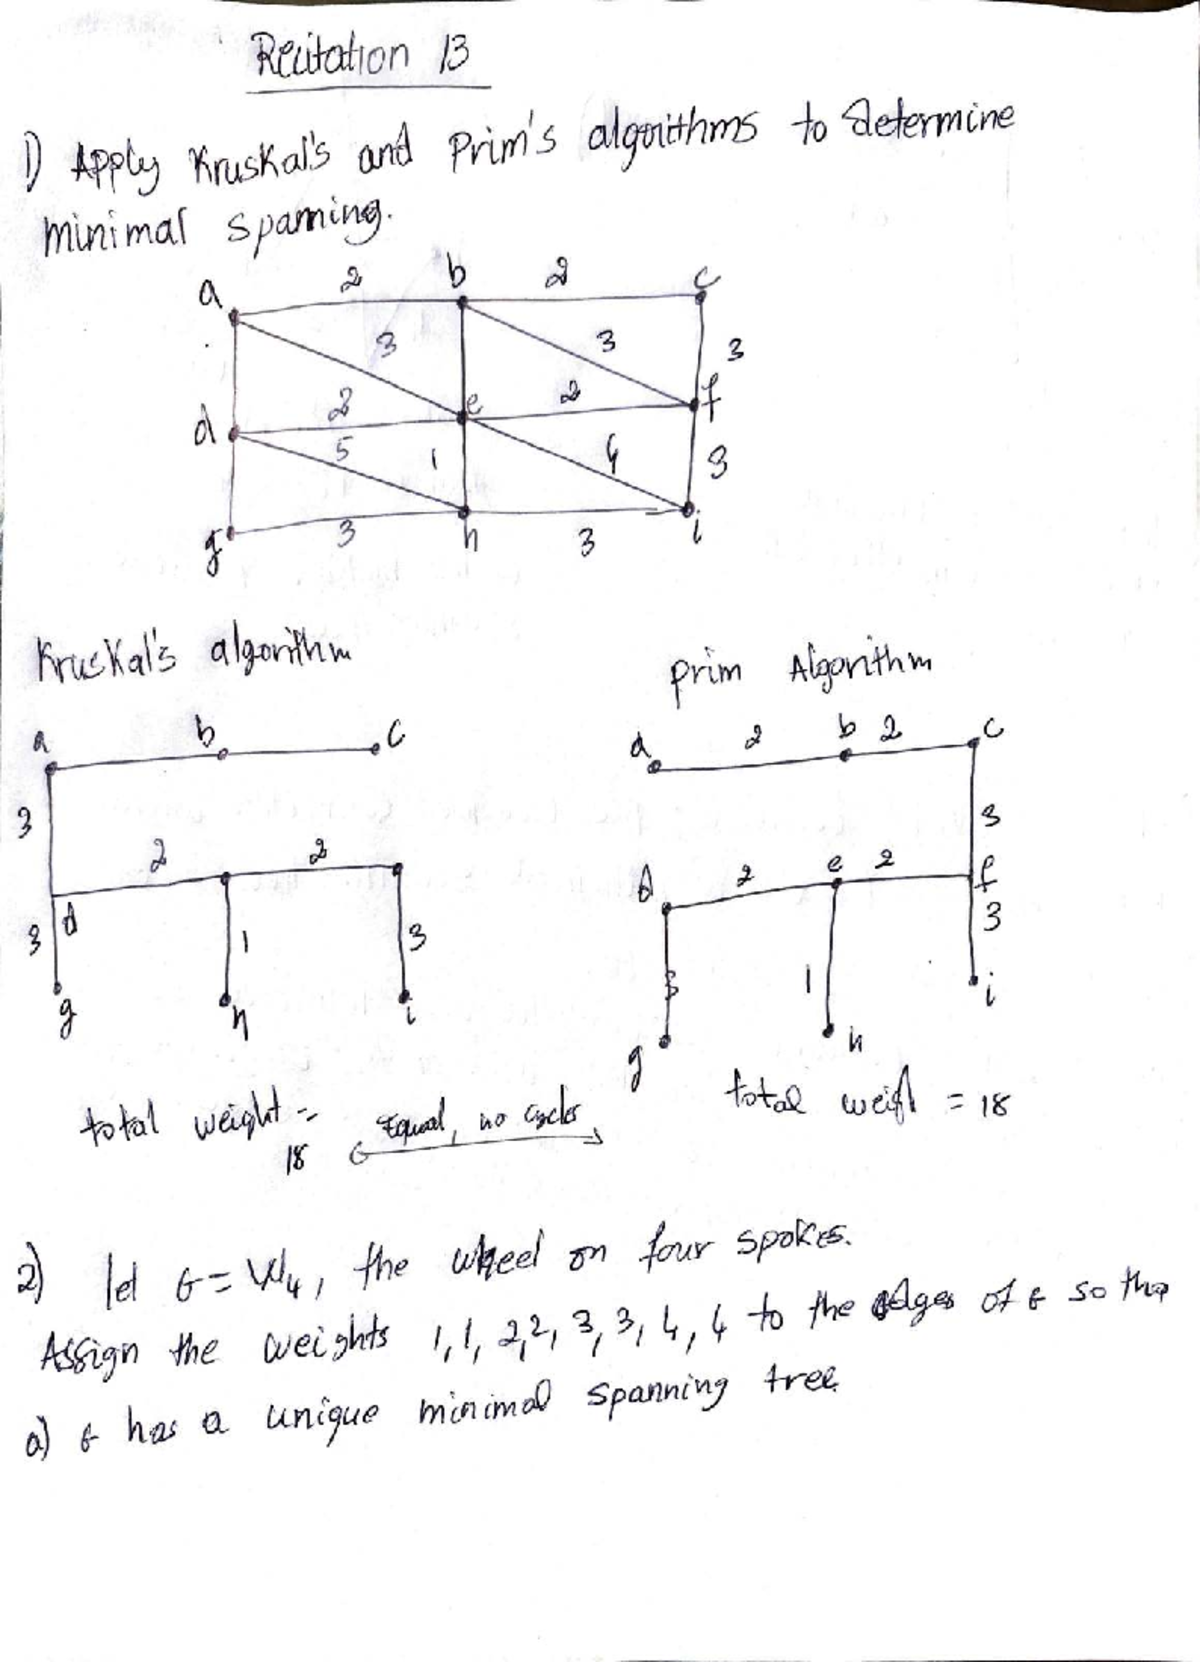 Recitation 13
1) Apply Kruskal's and Prim's algorithms to determine
minimal spanning.
a 2 b 2 c
3 3 3
d 2 e 2 f
5 1 4 3
g 3 h 3 i
Kruskal's algorithm
prim Algorithm
a b c
3 2 2
d
3 1 3
g h i
a 2 b 2 c
3
d 2 e 2 f
3 1 3
g h i
total weight =
18
Equal, no cycles
total weight = 18
2) let G = W4, the wheel on four spokes.
Assign the weights 1, 1, 2, 2, 3, 3, 4, 4 to the edges of G so tha
a) G has a unique minimal spanning tree